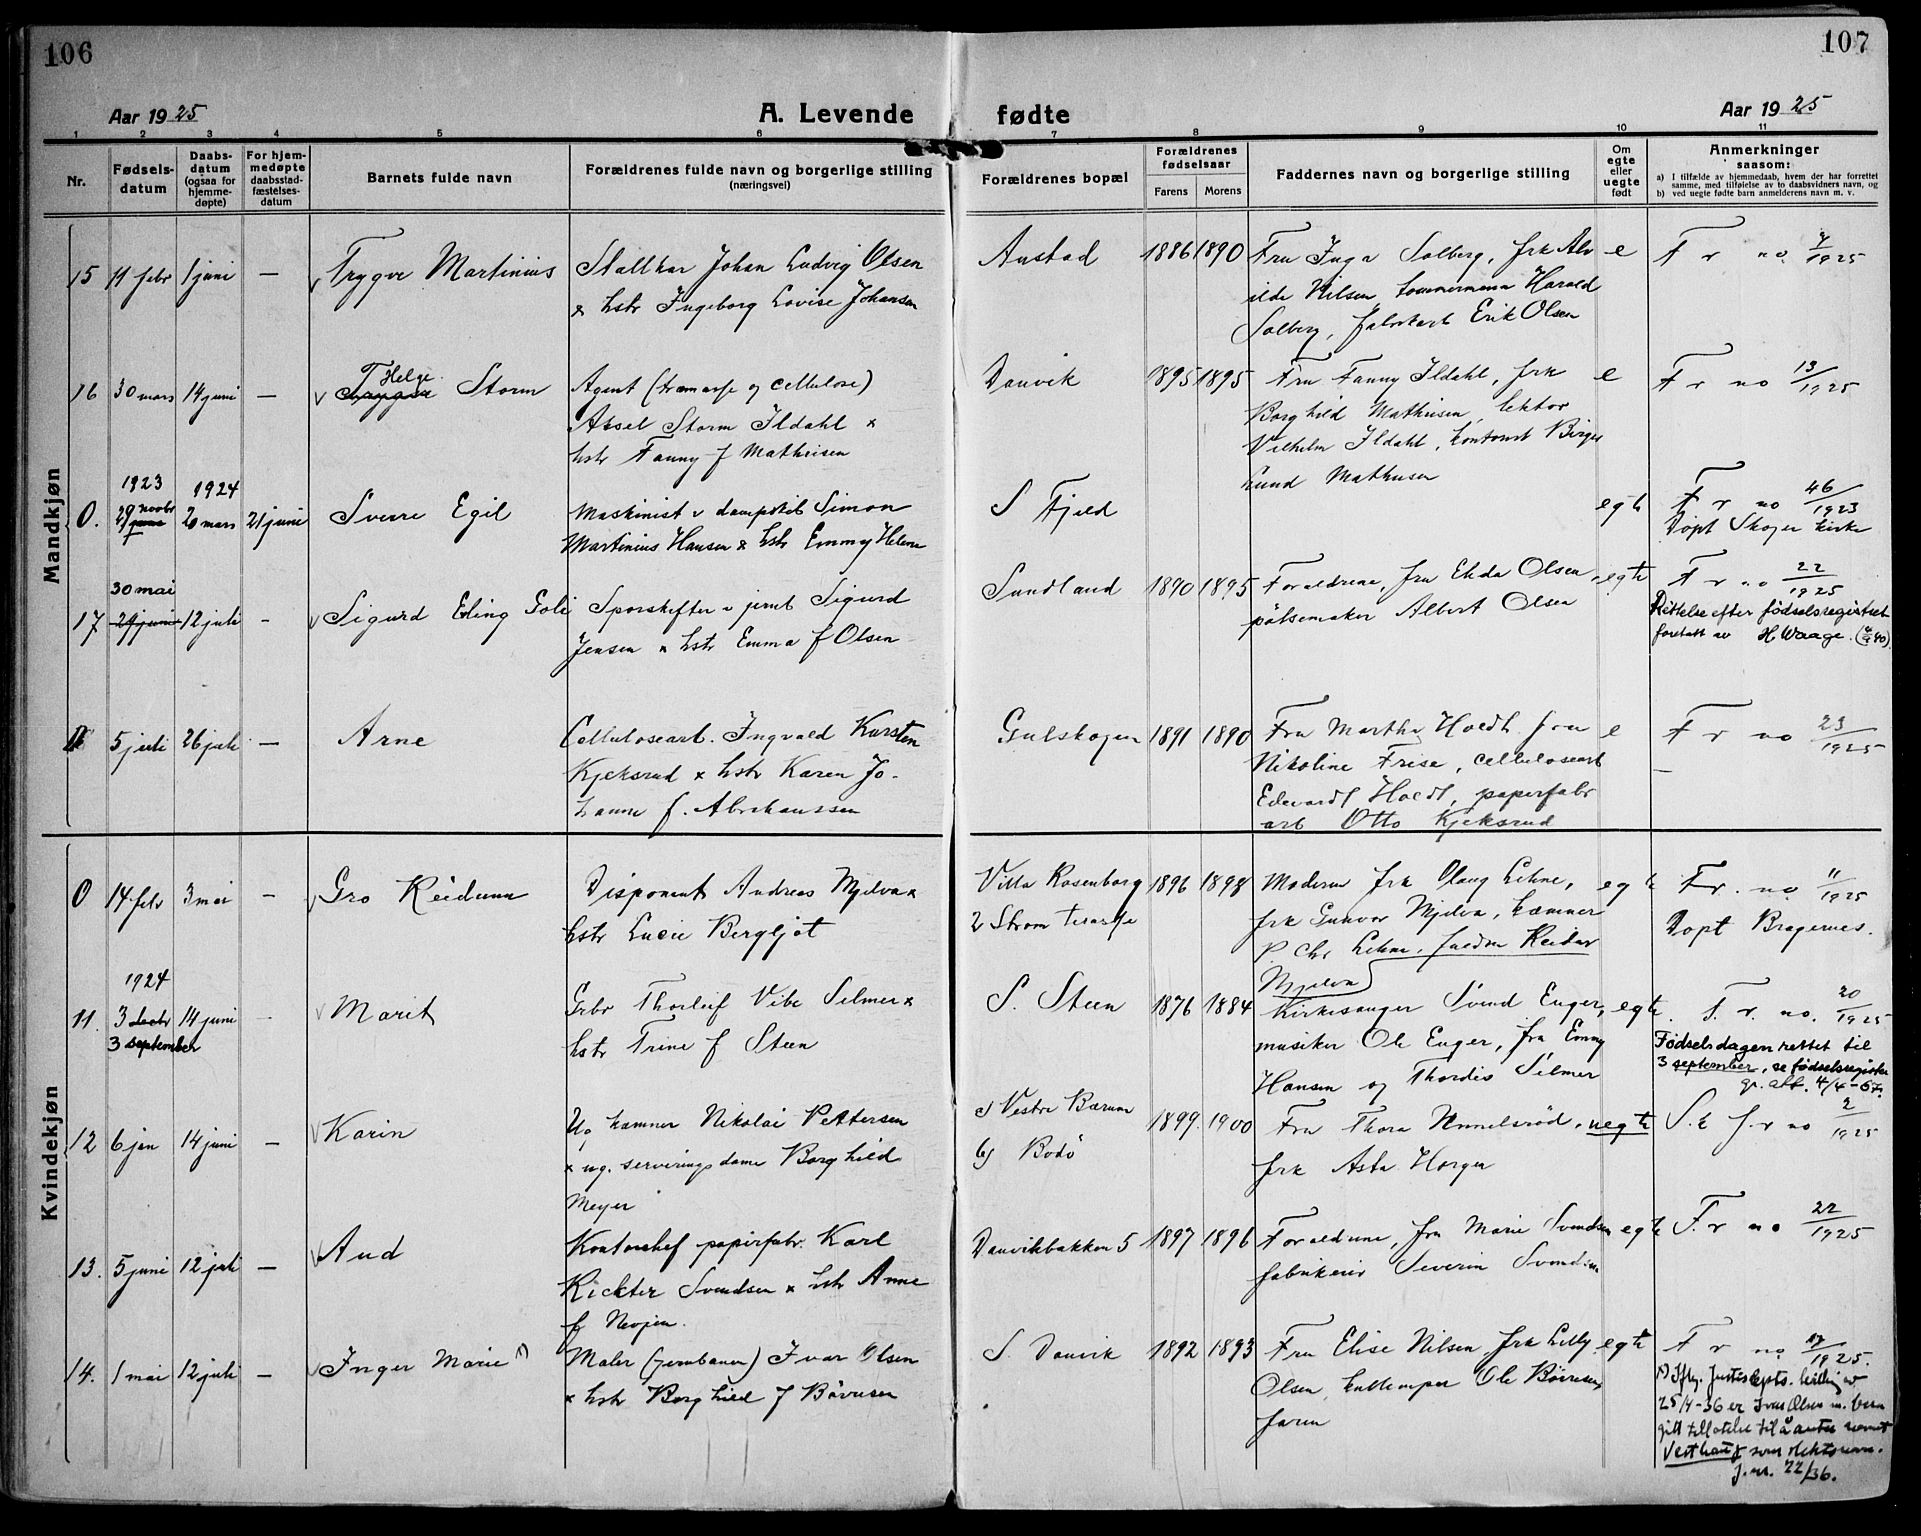 106
107
Aar 1925
A. Levende
fødte
Aar 1925
1 2 3 4 5 6 7 8 9 10 11
Nr.
Fødsels-
datum
Daabs-
datum
(ogsaa for
hjemme-
døpte)
For hjem-
medøpte
daabsstad-
fæstelses-
datum
Barnets fulde navn
Forældrenes fulde navn og borgerlige stilling
(næringsvei)
Forældrenes bopæl
Forældrenes
fødselsaar
Farens
Morens
Faddernes navn og borgerlige stilling
Om
egte
eller
uegte
født
Anmerkninger
saasom:
a) I tilfælde av hjemmedaab, hvem der har forrettet
samme, med tilføielse av to daabsvidners navn, og
b) ved uegte fødte barn anmelderens navn m. v.
Mandkjøn
15 11 febr 1 juni — Trygve Martinius
Stallkar Johan Ludvig Olsen
x hstr Ingeborg Lovise Johansen
Austad 1886 1890
Fru Inga Solberg, frk Alv
ilde Nilsen, tømmermann Harald
Solberg, fabrikarb Erik Olsen
e
F r no 7/1925
16 30 mars 14 juni — Trygve Helge Storm
Agent (træmasse og cellulose)
Aksel Storm Ildahl x
hstr Fanny f Mathisen
Danvik 1895 1895
Fru Fanny Ildahl, frk
Borghild Mathisen, lektor
Vilhelm Ildahl, kontorist Birger
Lund Mathisen
e
F r no 13/1925
0. 1923 29 juni novbr 1924 20 mars 21 juni Sverre Egil
Maskinist v dampskib Simon
Martinius Hansen x hstr Emmy Helene
S Fjeld
egte
F r no 46/1923
Døpt Skoger kirke
17 30 mai 29 juni 12 juli - Sigurd Erling Goli
Sporskifter v jernb Sigurd
Jensen x hstr Emma f Olsen
Sundland 1890 1895
Forældrene, fru Ekda Olsen,
pølsemaker Albert Olsen
egte
F r no 22/1925
Rettelse efter fødselsregistret
foretatt av H Waage.
5 juli 26 juli — Arne
Cellulosearb. Ingvald Karsten
Kjeksrud x hstr Karen Jo-
hanne f. Abrahamsen
Gulskogen 1891 1890
Fru Martha Holdt fru
Nikoline Frese, cellulosearb
Edevardt Holdt, papirfabr
arb Otto Kjeksrud
e
F r no 23/1925
—
Kvindekjøn
0 14 febr 3 mai - Gro Reidunn
Disponent Andreas Mjelva x
hstr Lucie Bergljot
Villa Rosenborg
2 Strøm terasse
1896 1898
Moderen frk Olaug Lehne,
frk Gunvor Mjelva, kæmner
P Chr Lehne, faeden Reidar
Mjelva
egte
Fr. no 11/1925
Døpt Bragernes.
11. 1924 3 decbr 3 september 14 juni - Marit
Grbr Thorleif Vibe Selmer x
hstr Trine f Steen
S. Steen 1876 1884
Kirkesanger Svend Enger,
musiker Ole Enger, fru Emmy
Hansen og Thordis Selmer
egte
F. r. no. 20/1925
Fødselsdagen rettet til
3 september, se fødselsregister
12 6 jan 14 juni — Karin
Nikolai Pettersen
x ug. serveringsdame Borghild
Meyer
a) Vestre Bærum
b) Bodø
1899. 1900
Fru Thora Ummelsrød,
frk Asta Horgen
uegte
S.k f.r no 2/1925
13. 5 juni 12 juli — Aud
Kontorchef papirfabr. Karl
Richter Svendsen x hstr Anne
f Nevjen.
Danvikbakken 5 1897 1896
Forældrene, fru Marie Svendsen
fabrikeier Severin Svendsen
egte
F. r no 22/1925
14. 1 mai 12 juli — Inger Marie 1)
Maler (jernbanen) Ivar Olsen
x hstr Borghild f Børresen
S. Danvik 1892 1893
Fru Elise Nilsen, frk Lilly
Olsen, Ole Børresen,
faren
egte
F r no 17/1925.
1) Iflg. Justisdepts. bevilling av
25/4-36 er Ivar Olsen m. barn
gitt tillatelse til å anta navnet
Vesthaug som slektsnavn.
J.nr. 22/36.